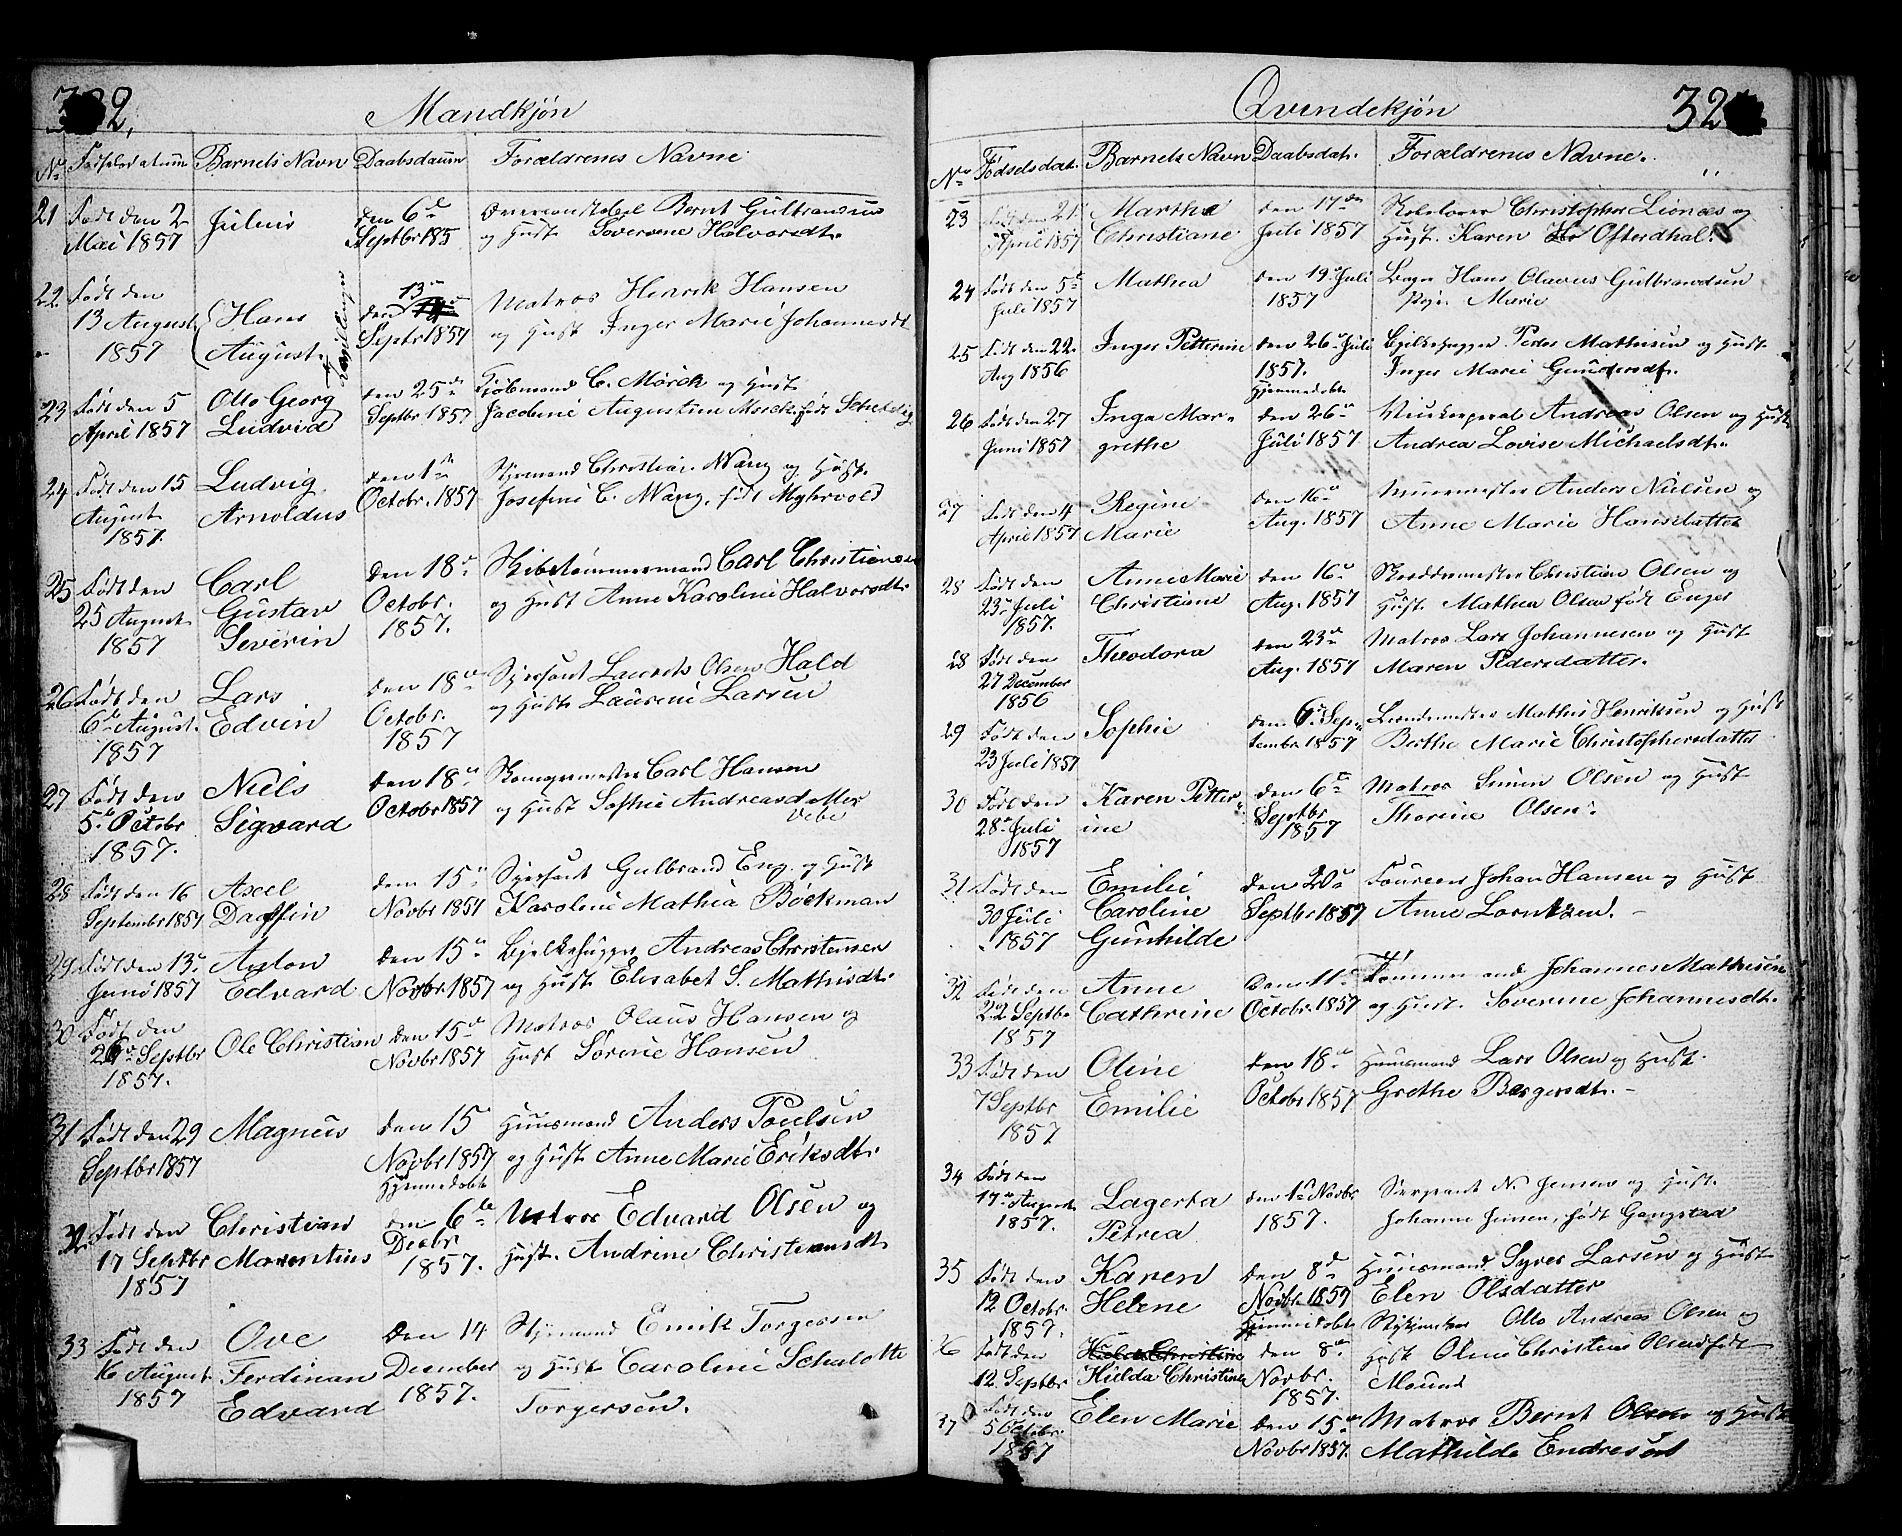 Mandkjøn
No Fødselsdatum Barnets Navn Daabsdaum Forældrenes Navne
21 Født den 2 Mai 1857 Julius den 6te Septbr 185 Bernt Gulbransen
og Hust Severene Halvorsdt.
22 Født den 13 August 1857 Hans August Tvillinger den 13de Septr 1857 Matros Henrik Hansen
og Hust Inger Marie Johannesdt
23 Født den 5 April 1857 Otto Georg Ludvid den 25de Septbr 1857 Kjøbmand C. Mørck og Hust
Jacobine Augustine Mørck født
24 Født den 15 August 1857. Ludvig Arnoldus den 1ste Octobr. 1857 Styrmand Christian Wang og Hust.
Josefine C. Wang, født Myhrvold
25 Født den 25 August 1857 Carl Gustav Severin Den 18de Octobr. 1857. Skibstømmermand Carl Christiansen
og Hust Anne Karoline Halvorsdt.
26 Født den 6te August. 1857 Lars Edvin den 18de Octobr. 1857 Laurits Olsen Hald
og Hust Laurine Larsen
27 Født den 5te Octobr 1857. Niels Sigvard den 18de Octobr 1857 Carl Hansen
og Hust Sophie Andreasdatter
Vebe
28 Født den 16 September 1857 Axel Daffin den 15de Novbr 1857 Gulbrand Eng. og Hust
Karoline Mathia Bøckman
29 Født den 13de Juni 1857 Anton Edvard den 15de Novbr 1857 Bjelkehugger Andreas Christensen
og Hust Elisabet S. Mathisdt.
30 Født den 26de Septbr 1857. Ole Christian den 15de Novbr 1857 Matros Olaus Hansen og
Hust Sørene Hansen
31 Født den 29 Septbr 1857 Magnus den 15 Novbr 1857 Huusmand Anders Poulsen
og Hust Anne Marie Eriksdt.
Hjemmedøbt
32 Født den 17 Septbr 1857 Christian Marentius den 6te Decbr 1857. Matros Edvard Olsen og
Hust. Andrine Christiansdt
33 Født den 16 August 1857 Ove Ferdinan Edvard Den 14 December 1857. Styrmand Emik Torgersen
og Hust Caroline Schalotte
Torgersen.
Qvindekjøn
No Fødselsdat. Barnets Navn Daabsdat. Forældrenes Navne.
23 Født den 21 April 1857 Marthe Christiane den 17de Juli 1857 Christopher Lionæs og
Hust. Karen Ofterdhal.
24 Født den 5te Juli 1857 Mathea den 19de Juli 1857 Hans Olavus Gulbrandsen
Pige Marie
25 Født den 22 Aug 1856 Inger Petterine den 26de Juli 1857. Bjelkehugger Peder Mathisen og Hust
Inger Marie Gundersdt.
Hjemmedøbt
26 Født den 27 Juni 1857 Inga Margrethe den 26de Juli 1857 Andreas Olsen og Hust
Andrea Lovise Michaelsdt.
27 Født den 4 April 1857 Regine Marie den 16de Aug. 1857 Muurmester Anders Nielsen og
Anne Marie Hansdatter
28 Født den 23de Juli 1857. Anne Marie Christiane den 16de Aug. 1857 Skreddermester Christian Olsen og
Hust. Mathea Olsen født Enger
28 Født den 27 December 1856 Theodora den 23de Aug. 1857 Matros Lars Johannesen og Hust
Maren Pedersdatter.
29 Født den 23 Juli 1857 Sophie den 6te September 1857 Mathis Henriksen og Hust
Berthe Marie Christophersdatter
30 Født den 28de Juli 1857 Karen Petterine den 6te Septbr 1857 Matros Simen Olsen og Hust
Thorine Olsen.
31 Født den 30 Juli 1857 Emilie Caroline Gunhilde den 20de Septbr 1857 Foureer Johan Hansen og Hust
Anne Lorntzen.
32 Født den 22 Septbr 1857 Anne Cathrine Den 11te Octobr. 1857 Tømmermand Johannes Mathisen
og Hust. Severine Johannesdt.
33 Født den 7 Septbr 1857 Oline Emilie den 18de Octobr 1857 Huusmand Lars Olsen og Hust.
Grethe Børgersdt.
34 Født den 17de August 1857. Lagerta Petrea den 1ste Novbr 1857. Sergeant N. Jensen og Hust.
Johanne Jensen, født Gangstad
35 Født den 12 Octobr. 1857. Karen Helene den 8de Novbr 1857 Huusmand Syver Larsen og Hust
Elen Olsdatter
Hjemmedøbt
36 Født den 12. Septbr Hilda Christine den 8de Novbr. 1857. Otto Andreas Olsen og
Hust Oline Christine Olsen født
37 Født den 5 Octobr. 1857 Elen Marie den 15de Novbr 1857. Matros Bernt Olsen og Hust
Mathilde Endresdt